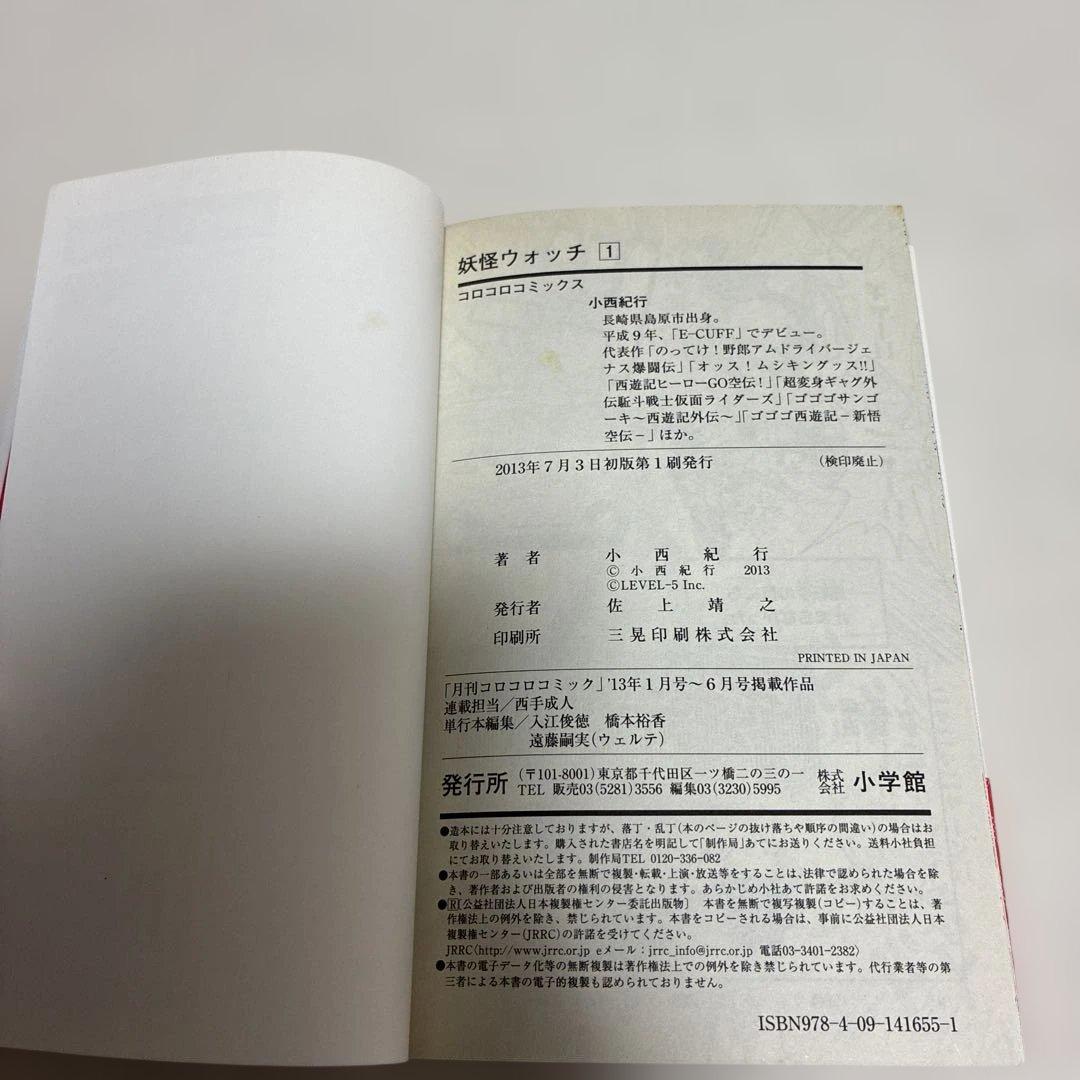 妖怪ウォッチ 1
コロコロコミックス
小西紀行
長崎県島原市出身。
平成9年、「E-CUFF」でデビュー。
代表作「のってけ!野郎アムドライバージェ
ナス爆闘伝」「オッス!ムシキングッス!!」
「西遊記ヒーローGO空伝!」「超変身ギャグ外
伝駈斗戦士仮面ライダーズ」「ゴゴゴサンゴ
ーキ〜西遊記外伝〜」「ゴゴゴ西遊記−新悟
空伝−」ほか。
2013年7月3日初版第1刷発行 (検印廃止)
著者 小西紀行
© 小西紀行 2013
©LEVEL-5 Inc.
発行者 佐上靖之
印刷所 三晃印刷株式会社
PRINTED IN JAPAN
「月刊コロコロコミック」'13年1月号〜6月号掲載作品
連載担当/西手成人
単行本編集/入江俊徳 橋本裕香
遠藤嗣実(ウェルテ)
発行所 (〒101-8001)東京都千代田区一ツ橋二の三の一 株式会社 小学館
TEL 販売03(5281)3556 編集03(3230)5995
●造本には十分注意しておりますが、落丁・乱丁(本のページの抜け落ちや順序の間違い)の場合はお
取り替えいたします。購入された書店名を明記して「制作局」あてにお送りください。送料小社負担
にてお取り替えいたします。制作局TEL 0120-336-082
●本書の一部あるいは全部を無断で複製・転載・上演・放送等をすることは、法律で認められた場合を除
き、著作者および出版者の権利の侵害となります。あらかじめ小社あて許諾をお求めください。
●R[公益社団法人日本複製権センター委託出版物] 本書を無断で複写複製(コピー)することは、著
作権法上の例外を除き、禁じられています。本書をコピーされる場合は、事前に公益社団法人日本
複製権センター(JRRC)の許諾を受けてください。
JRRC〈http://www.jrrc.or.jp eメール:jrrc_info@jrrc.or.jp 電話03-3401-2382〉
●本書の電子データ化等の無断複製は著作権法上での例外を除き禁じられています。代行業者等の第
三者による本書の電子的複製も認められておりません。
ISBN978-4-09-141655-1